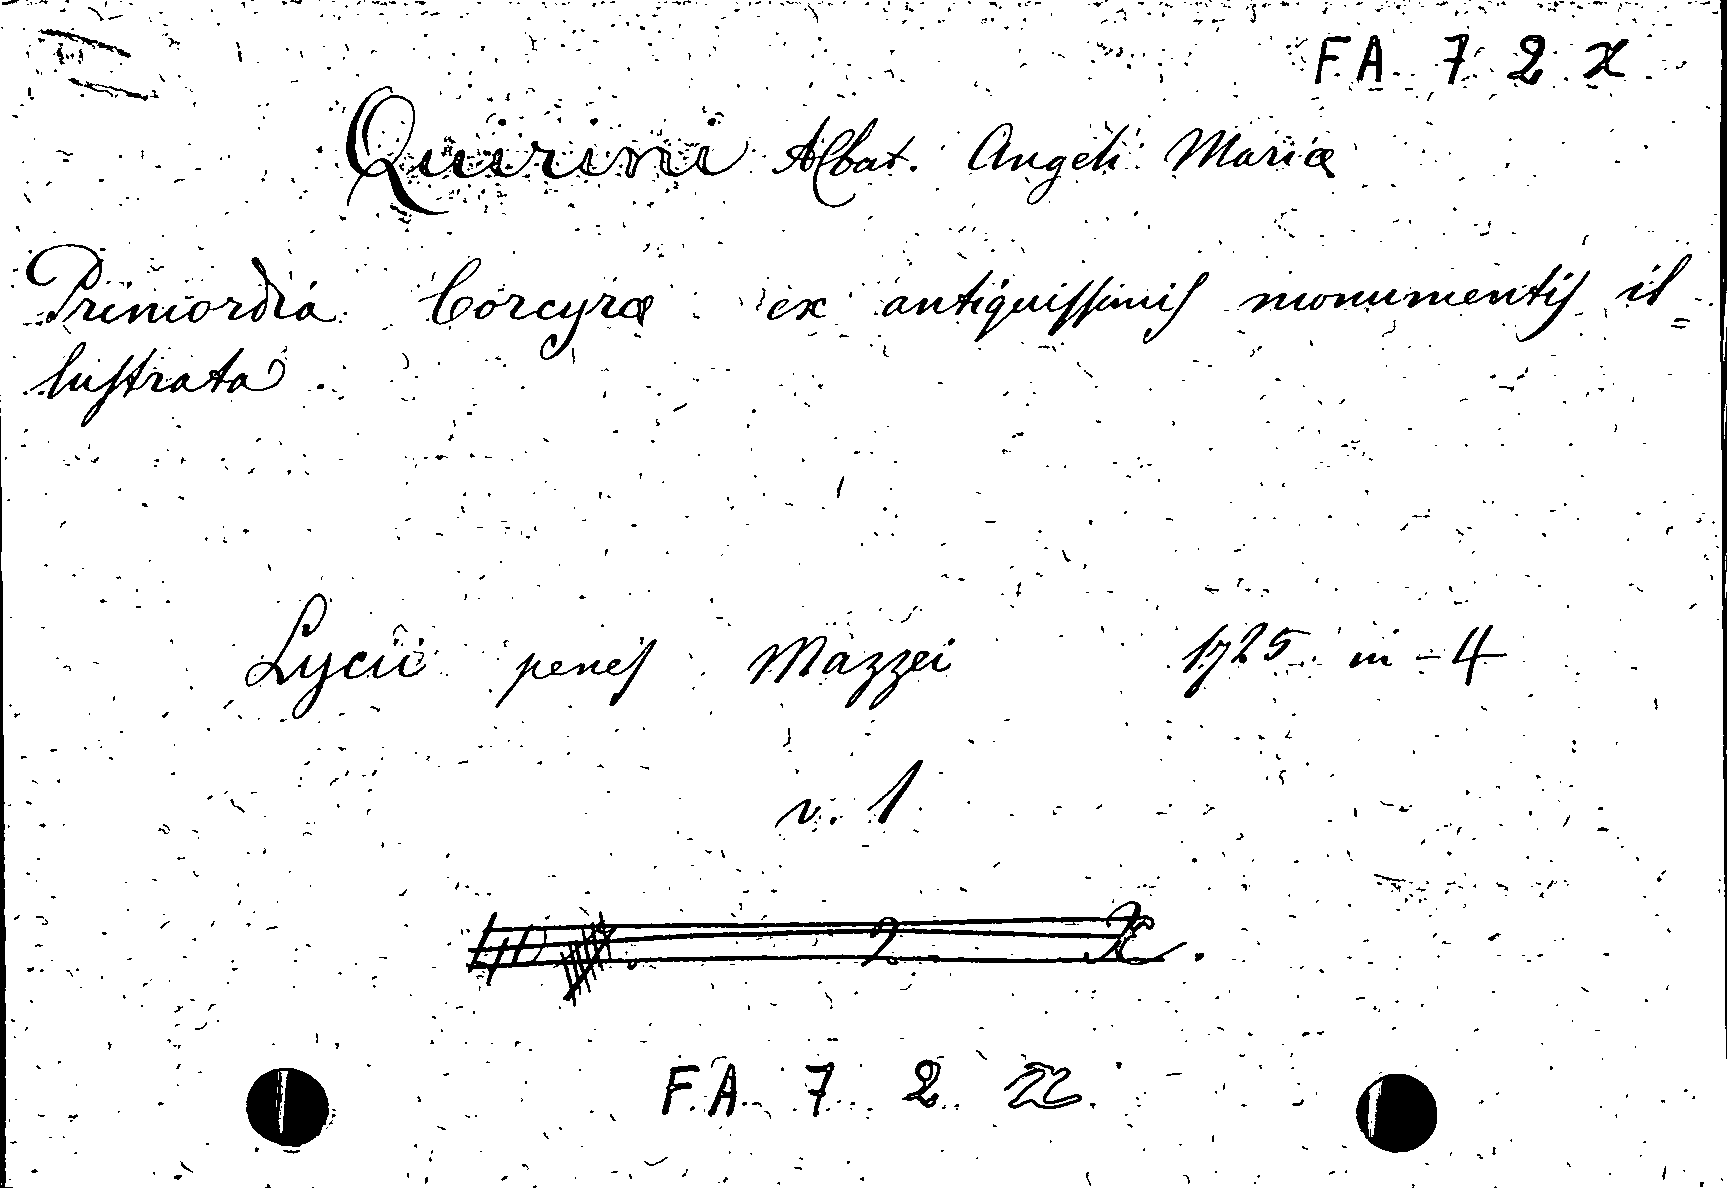 F.A. 7 2 X
Quirini Abbat. Angeli Mariæ
Primordia Corcyræ ex antiquissimis monumentis il=
lustrata.
Lycii penes Mazzei 1725 in-4
v. 1
2 X.
F.A. 7 2 X